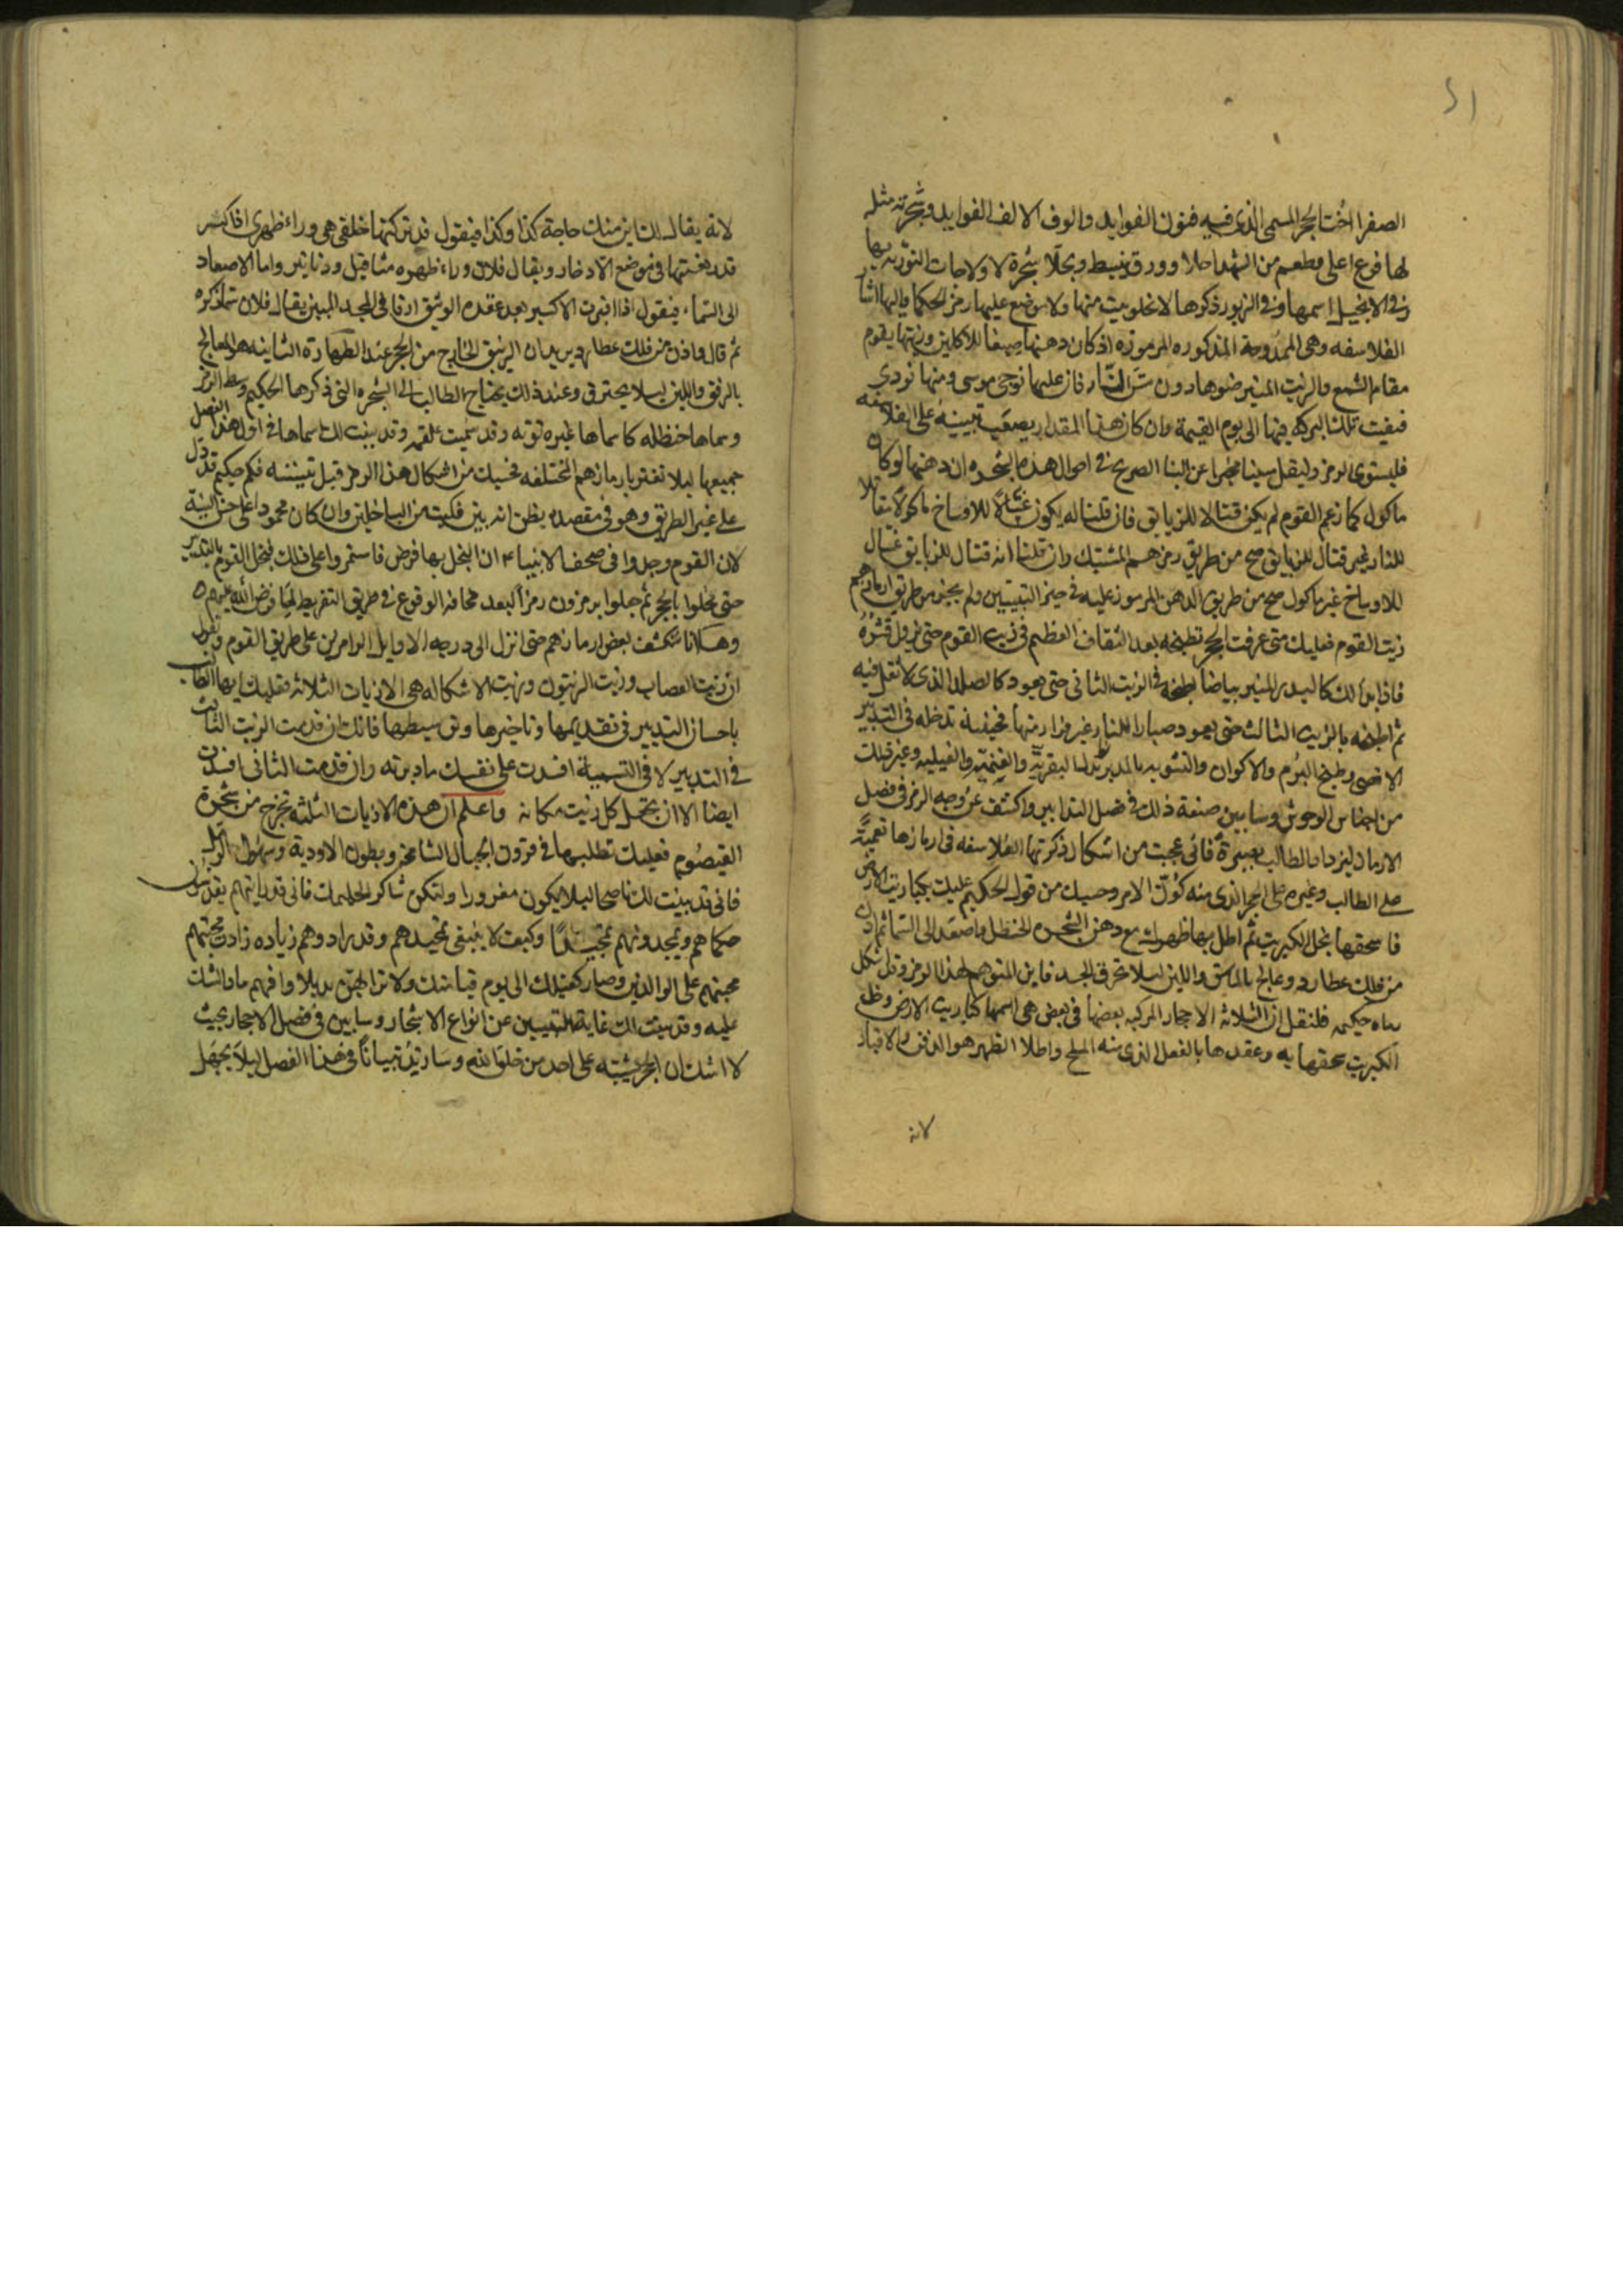 ٢١
الصفرا اخت الحجر المسمى الذى فيه فنون الفوايد والوف الالف الفوايد وشجرته مثله
لها فرع اعلى ومطعم من الشهد احلا وورق ينبسط ويحلا شجرة لا ولاحات التورية بها
وفى الانجيل اسمها وفى الزبور ذكرها لا تخلو بيت منها ولا موضع عليها رمز الحكما واليها اشار
الفلاسفه وهى الممدوحة المذكوره المرموزه اذ كان دهنها صبغا للاكلين وزيتها يقوم
مقام الشمع والزيت المنير ضوها دون شرر النار فان عليها نوجى موسى ومنها نودى
فبقيت تلك البركه فيها الى يوم القيمة وان كان هذا المقدار يصعب تبيينه على الفلاسفه
فليستوى الرمز ولينقل سينا عن البنا الصريح فى احوال هذه الشجره ان دهنها لو كان
ماكول كما زعم القوم لم يكن قتالا للزيابق فان قلنا له يكون غسالا للاوساخ ماكولا مقاتلا
للنار غير قتال للزيابق صح من طريق رمزهم المشتبك وان قلنا انه قتال للزيابق غسال
للاوساخ غير ماكول صح من طريق الدهن المرموز عليه فى حيز التبييين ولم يجز من طريق ارمازهم
زيت القوم فعليك متى عرفت الحجر تطبخه بعد الثقاف العظيم فى زيت القوم حتى يزول قشره
فاذا بان لك كالبدر المنير بياضا اطبخه فى الزيت الثانى حتى يعود كالصلد الذى لا نقل فيه
ثم اطبخه بالزيت الثالث حتى يعود صبارا للنار غير فرار منها فحينئذ تدخله فى التدبير
الاقصى وطبيخ البرم والاكوان والتشويه بالمدبر البقرية والغنمية والفيليه وغير ذلك
من اجناس الوحوش وسابين صنعة ذلك فى فصل التدابير واكشف عن وجه الرمز فى فصل
الارماز ليزداد الطالب بصيرة فانى عجبت من اشكال ذكرتها الفلاسفه فى ارمازها تعمية
على الطالب وغيره على الحجر الذى منه كون الامر وحسبك من قول الحكيم عليك بكباريت الارض
فاسحقها بخل الكبريت ثم اطل بها ظهرك مع دهن الشجره الحنظل واصعد الى السما ثم اذن
من فلك عطارد وعالج بالماسق واللين ليلا تحرق الجسد فاين المتوهم لهذا الرمز وقل شكل
معاه حكيمه فلنقل ان الثلاثه الاحجار المركبه بعضها فى بعض هى اسمها كباريت الارض وخل
الكبريت سحقها به وعقدها بالفعل الذى منه الملح واطلا الظهر هو الدفن والاقياد
لانه
لانه يقال لك اين منك حاجة كذا وكذا فيقول قد تركتها خلفى هى وراء ظهرى اذا كنت
قد دفنتها فى موضع الادخار ويقال فلان وراء ظهره مثاقيل ودنانير واما الاصعاد
الى السماء فيقول اذا اقبرت الاكسير بعد عقده الوثيق ارقا فى المجد المبين يقال فلان سما ذكره
ثم قال وادن من فلك عطارد يريد ان الزيبق الخارج من الحجر عند الطهارة الثانيه هو المعالج
بالرفق واللين ليلا يحترق وعند ذلك يحتاج الطالب الى الشجره التى ذكرها الحكيم وسط الرمز
وسماها حنظله كما سماها غيره توته وقد سميت علقم وقد بينت لك اسماها فى اول هذا الفصل
جميعها ليلا تغتر بارمازهم المختلفه فحسبك من اشكال هذا الرمز قبل تبيينه فكم حكيم قد دل
على غير الطريق وهو فى مقصده يظن انه بين فكيت من الباخلين وان كان محمودا على حسن النية
لان القوم وجدوا فى صحف الانبياء ان البخل بها فرض فاستمروا على ذلك فبخل القوم بالتدبير
حتى بخلوا بالحجر ثم جعلوا يرمزون رمزا البعد مخافة الوقوع فى طريق التفريط لما فرض الله عليهم
وهاانا سنكشف بعض ارمازهم حتى انزل الى درجه الاوايل الرامزين على طريق القوم واقول
ان زيت العصاب وزيت الزيتون وزيت الاشكاله هى الازيات الثلاثه فعليك ايها الطالب
باحسان التدبير فى تقديمها وتاخيرها وتوسيطها فانك ان قدمت الزيت الثالث
فى التدبير لا فى التسمية افسدت على نفسك مادبرته وان قدمت الثانى افسدت
ايضا الا ان تجعل كل زيت مكانه واعلم ان هذه الازيات الثلثه تخرج من شجرة
القيصوم فعليك تطلبها فى قرون الجبال الشامخة وبطون الاودية وسهول الرمل
فانى قد بينت لك ناصحا ليلا يكون مغرورا ولتكن شاكر الحكيمات فانى قد رايتهم يقدسون
حكماهم ويمجدونهم تمجيدا وكيف لا ينبغى تمجيدهم وقد زادوهم زياده زادت محبتهم
محبتهم على الوالدين وصار كفيلك الى يوم قيامتك ولا ترا لهم بديلا وافهم ماذا لك
عليه وقد بينت لك غاية التبيين عن انواع الاشجار وسابين فى فصل الاحجار بحيث
لا اشك ان الحجر يشتبه على احد من خلق الله وسازيد تبيانا فى هذا الفصل ليلا يجهل